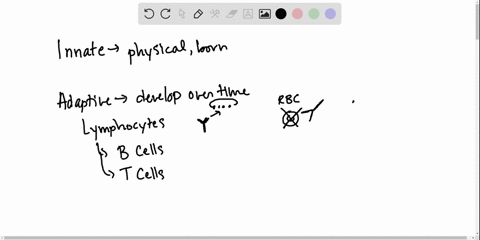 Innate → physical, born
Adaptive → develop over time
Lymphocytes
RBC
↳ B Cells
↳ T Cells